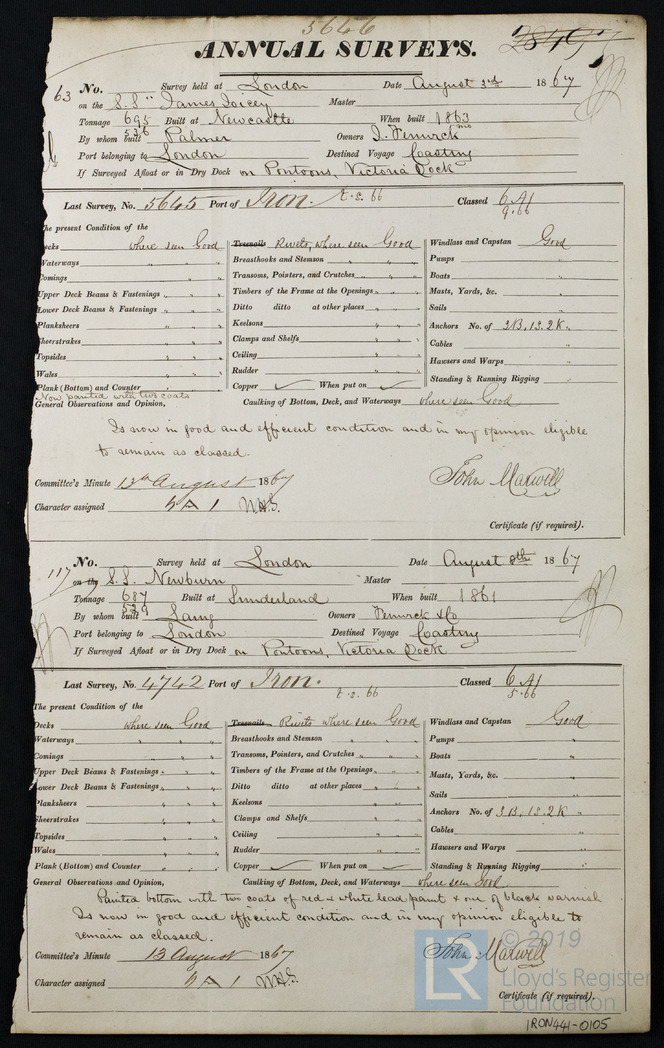 5646
ANNUAL SURVEYS.
63 No. Survey held at London Date August 3rd 1867
on the S.S "James Joicey Master
Tonnage 695 Built at Newcastle When built 1863
536
By whom built Palmer Owners J. Fenwick
Port belonging to London Destined Voyage Coasting
If Surveyed Afloat or in Dry Dock on Pontoons, Victoria Dock
Last Survey, No. 5645 Port of Iron. Classed 6 A1
9.66
The present Condition of the
Decks where seen Good Treenails Rivets, where seen Good Windlass and Capstan Good
Waterways " " Breasthooks and Stemson " " Pumps "
Comings " " Transoms, Pointers, and Crutches " " Boats "
Upper Deck Beams & Fastenings " " Timbers of the Frame at the Openings " " Masts, Yards, &c. "
Lower Deck Beams & Fastenings " " Ditto ditto at other places " " Sails "
Planksheers " " Keelsons " " Anchors No. of 3B, 1S, 2K "
Sheerstrakes " " Clamps and Shelfs " " Cables "
Topsides " " Ceiling " " Hawsers and Warps "
Wales " " Rudder " " Standing & Running Rigging "
Plank (Bottom) and Counter " " Copper ✓ When put on ✓
Now painted with two coats
General Observations and Opinion, Caulking of Bottom, Deck, and Waterways where seen Good
Is now in good and efficient condition and in my opinion eligible
to remain as classed.
Committee's Minute 13th August 1867 John Maxwell
Character assigned 6 A 1
Certificate (if required).
117 No. Survey held at London Date August 8th 1867
on the S.S. Newburn Master
Tonnage 687 Built at Sunderland When built 1861
529
By whom built Laing Owners Fenwick & Co
Port belonging to London Destined Voyage Coasting
If Surveyed Afloat or in Dry Dock on Pontoons, Victoria Dock
Last Survey, No. 4742 Port of Iron. Classed 6 A1
5.66
The present Condition of the
Decks where seen Good Treenails Rivets where seen Good Windlass and Capstan Good
Waterways " " Breasthooks and Stemson " " Pumps "
Comings " " Transoms, Pointers, and Crutches " " Boats "
Upper Deck Beams & Fastenings " " Timbers of the Frame at the Openings " " Masts, Yards, &c. "
Lower Deck Beams & Fastenings " " Ditto ditto at other places " " Sails "
Planksheers " " Keelsons " " Anchors No. of 3B, 1S, 2K "
Sheerstrakes " " Clamps and Shelfs " " Cables "
Topsides " " Ceiling " " Hawsers and Warps "
Wales " " Rudder " " Standing & Running Rigging "
Plank (Bottom) and Counter " " Copper ✓ When put on ✓
General Observations and Opinion, Caulking of Bottom, Deck, and Waterways where seen Good
Painted bottom with two coats of red & white lead paint & one of black varnish
Is now in good and efficient condition and in my opinion eligible to
remain as classed.
Committee's Minute 13 August 1867 John Maxwell
Character assigned 6 A 1
Certificate (if required).
LR © 2019
Lloyd's Register
Foundation
IRON441-0105